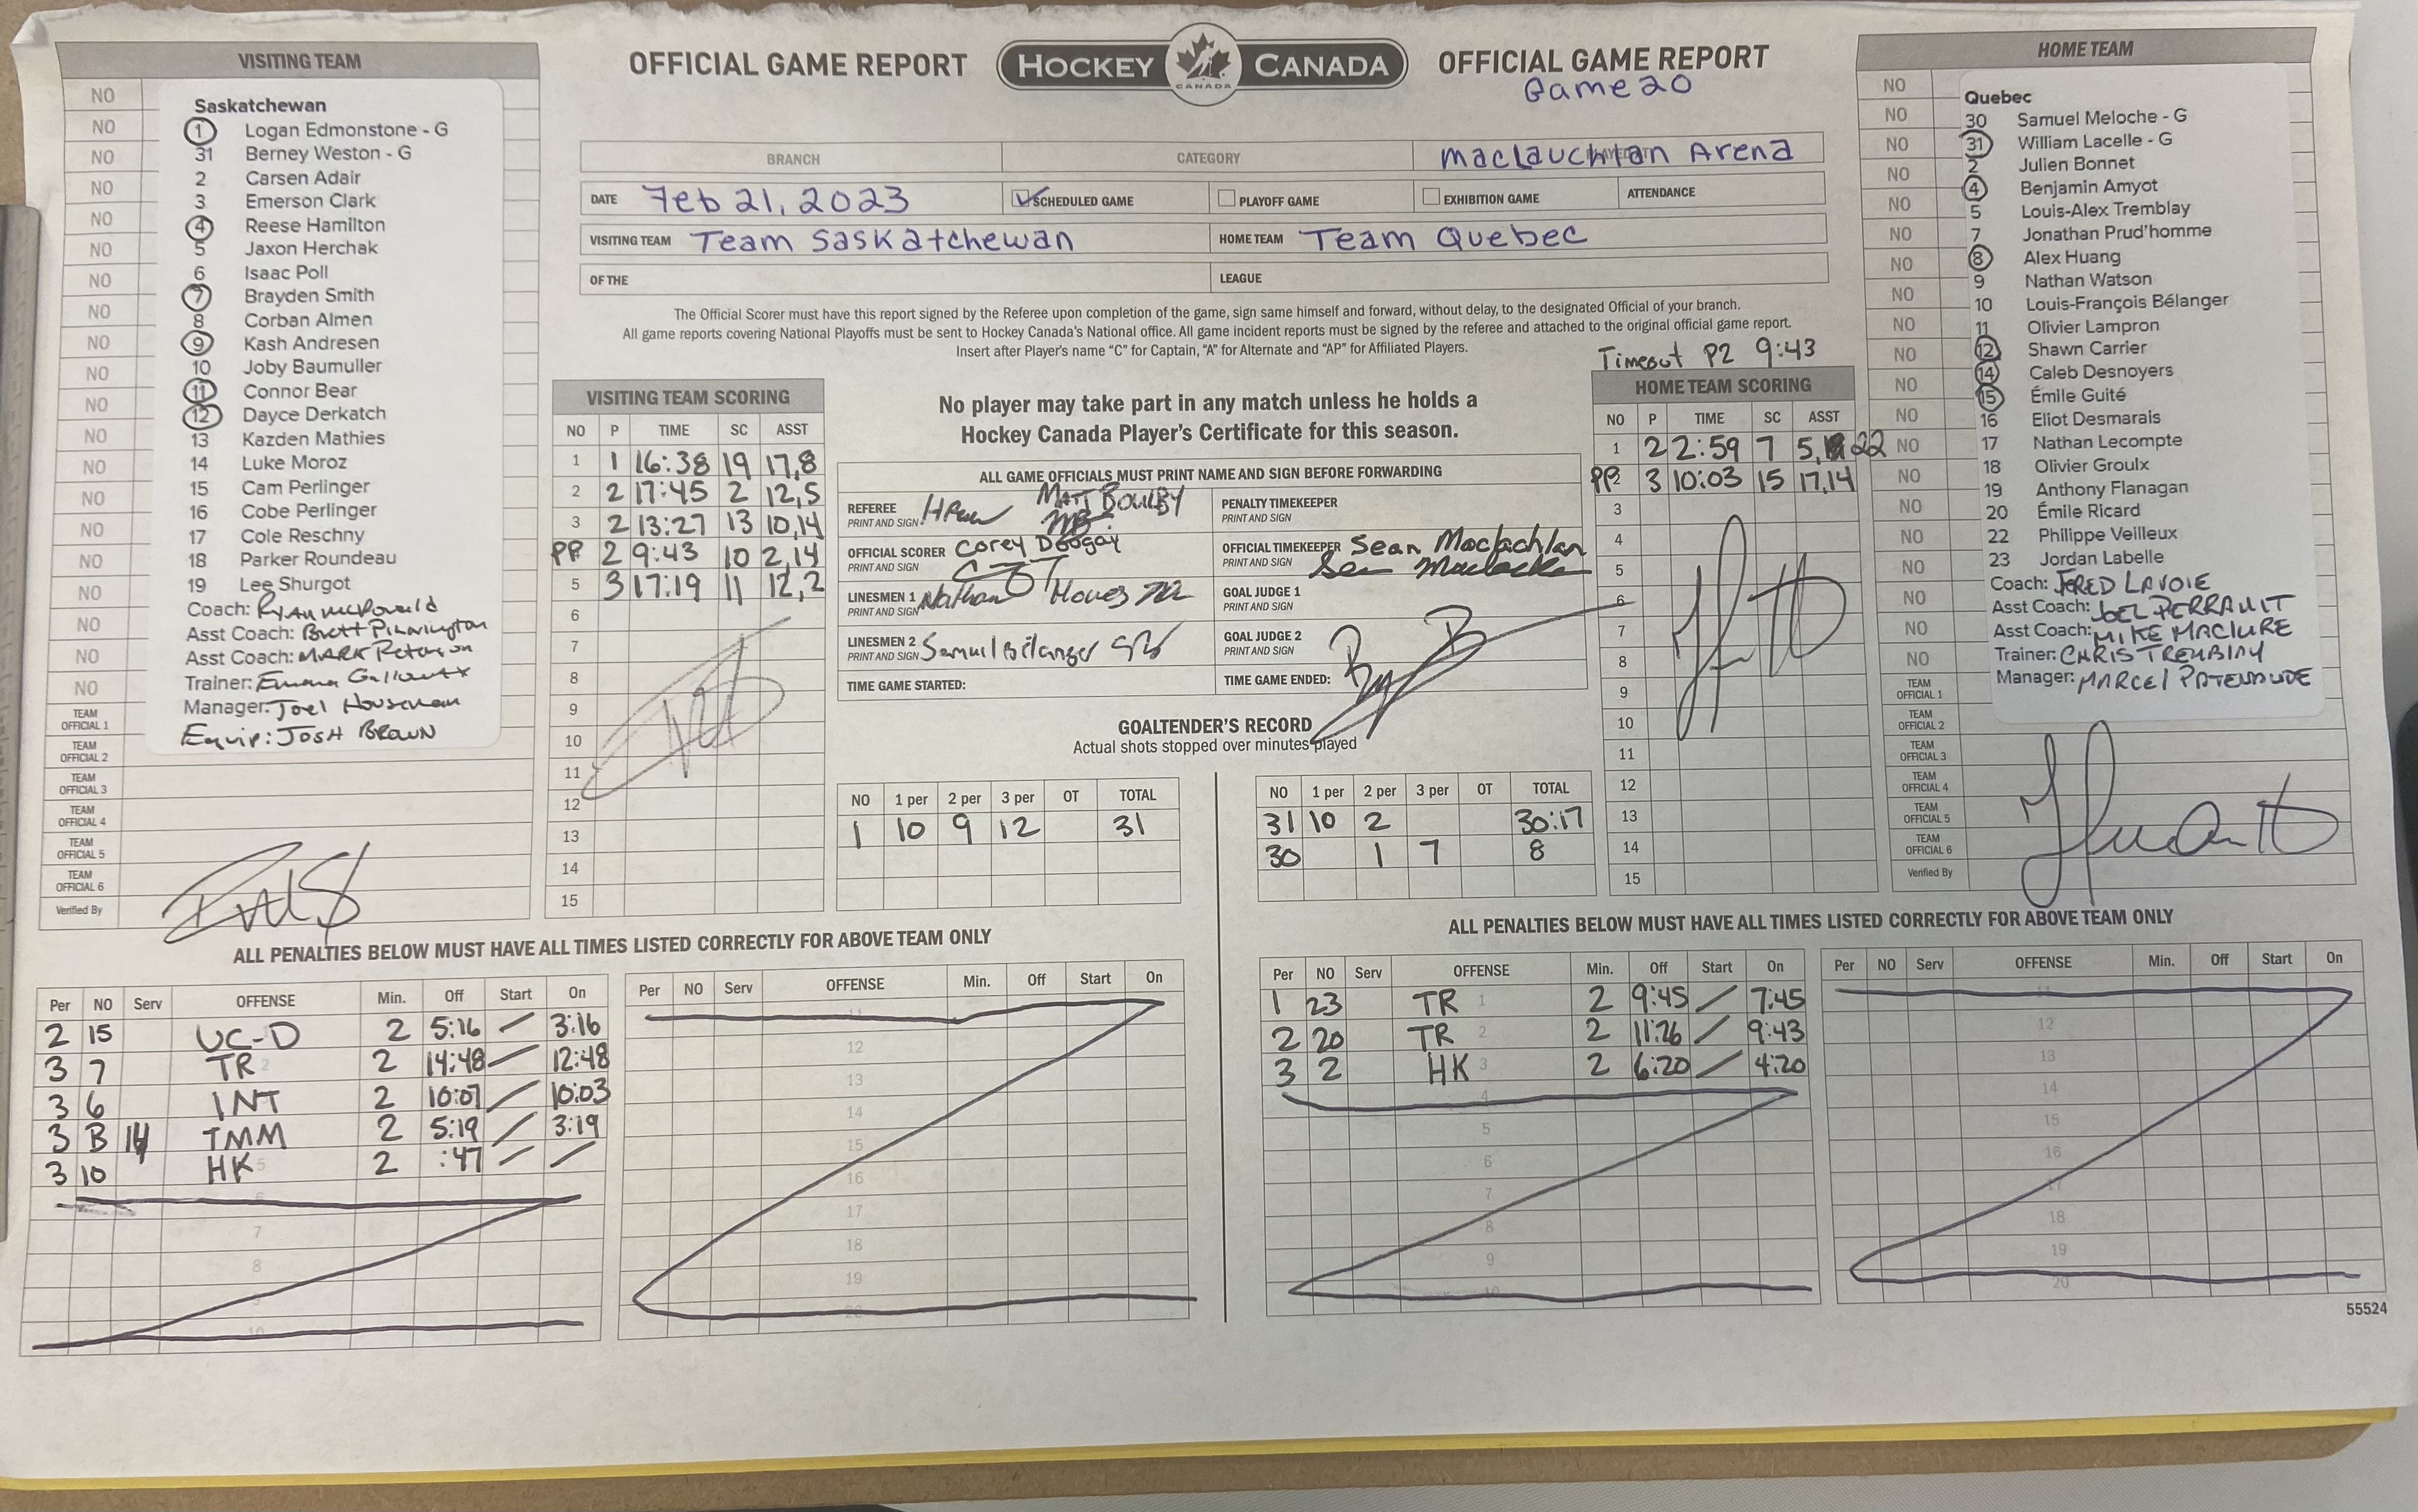 VISITING TEAM
NO
Saskatchewan
1 Logan Edmonstone - G
31 Berney Weston - G
2 Carsen Adair
3 Emerson Clark
4 Reese Hamilton
5 Jaxon Herchak
6 Isaac Poll
7 Brayden Smith
8 Corban Almen
9 Kash Andresen
10 Joby Baumuller
11 Connor Bear
12 Dayce Derkatch
13 Kazden Mathies
14 Luke Moroz
15 Cam Perlinger
16 Cobe Perlinger
17 Cole Reschny
18 Parker Roundeau
19 Lee Shurgot
Coach: Ryan McDonald
Asst Coach: Brett Pilkington
Asst Coach: MARK Peterson
Trainer: Emma
Manager: Joel Houseman
Equip: JOSH BROWN
TEAM OFFICIAL 1
TEAM OFFICIAL 2
TEAM OFFICIAL 3
TEAM OFFICIAL 4
TEAM OFFICIAL 5
TEAM OFFICIAL 6
Verified By
OFFICIAL GAME REPORT
HOCKEY CANADA
CANADA
OFFICIAL GAME REPORT
Game 20
BRANCH CATEGORY MacLauchlan Arena
DATE Feb 21, 2023 SCHEDULED GAME PLAYOFF GAME EXHIBITION GAME ATTENDANCE
VISITING TEAM Team Saskatchewan HOME TEAM Team Quebec
OF THE LEAGUE
The Official Scorer must have this report signed by the Referee upon completion of the game, sign same himself and forward, without delay, to the designated Official of your branch.
All game reports covering National Playoffs must be sent to Hockey Canada's National office. All game incident reports must be signed by the referee and attached to the original official game report.
Insert after Player's name "C" for Captain, "A" for Alternate and "AP" for Affiliated Players.
Timeout P2 9:43
VISITING TEAM SCORING
NO P TIME SC ASST
1 1 16:38 19 17,8
2 2 17:45 2 12,5
3 2 13:27 13 10,14
PP 2 9:43 10 2,14
5 3 17:19 11 12,2
6
7
8
9
10
11
12
13
14
15
No player may take part in any match unless he holds a
Hockey Canada Player's Certificate for this season.
ALL GAME OFFICIALS MUST PRINT NAME AND SIGN BEFORE FORWARDING
REFEREE PRINT AND SIGN MATT BOULBY
PENALTY TIMEKEEPER PRINT AND SIGN
OFFICIAL SCORER PRINT AND SIGN Corey
OFFICIAL TIMEKEEPER PRINT AND SIGN Sean Maclachlan
LINESMEN 1 PRINT AND SIGN Nathan
GOAL JUDGE 1 PRINT AND SIGN
LINESMEN 2 PRINT AND SIGN Samuel Bélanger SB
GOAL JUDGE 2 PRINT AND SIGN
TIME GAME STARTED: TIME GAME ENDED:
GOALTENDER'S RECORD
Actual shots stopped over minutes played
NO 1 per 2 per 3 per OT TOTAL
1 10 9 12 31
NO 1 per 2 per 3 per OT TOTAL
31 10 2 30:17
30 1 7 8
HOME TEAM SCORING
NO P TIME SC ASST
1 2 2:59 7 5, 22
PP 3 10:03 15 17,14
3
4
5
6
7
8
9
10
11
12
13
14
15
HOME TEAM
NO
Quebec
30 Samuel Meloche - G
31 William Lacelle - G
2 Julien Bonnet
4 Benjamin Amyot
5 Louis-Alex Tremblay
7 Jonathan Prud'homme
8 Alex Huang
9 Nathan Watson
10 Louis-François Bélanger
11 Olivier Lampron
12 Shawn Carrier
14 Caleb Desnoyers
15 Émile Guité
16 Eliot Desmarais
17 Nathan Lecompte
18 Olivier Groulx
19 Anthony Flanagan
20 Émile Ricard
22 Philippe Veilleux
23 Jordan Labelle
Coach: JERED LAVOIE
Asst Coach: JOEL PERRAULT
Asst Coach: MIKE MACLURE
Trainer: CHRIS TREMBLAY
Manager: MARCEL PATENAUDE
TEAM OFFICIAL 1
TEAM OFFICIAL 2
TEAM OFFICIAL 3
TEAM OFFICIAL 4
TEAM OFFICIAL 5
TEAM OFFICIAL 6
Verified By
ALL PENALTIES BELOW MUST HAVE ALL TIMES LISTED CORRECTLY FOR ABOVE TEAM ONLY
Per NO Serv OFFENSE Min. Off Start On
2 15 UC-D 2 5:16 3:16
3 7 TR 2 14:48 12:48
3 6 INT 2 10:07 10:03
3 B 14 TMM 2 5:19 3:19
3 10 HK 2 :47
6
7
8
9
10
Per NO Serv OFFENSE Min. Off Start On
11
12
13
14
15
16
17
18
19
20
ALL PENALTIES BELOW MUST HAVE ALL TIMES LISTED CORRECTLY FOR ABOVE TEAM ONLY
Per NO Serv OFFENSE Min. Off Start On
1 23 TR 2 9:45 7:45
2 20 TR 2 11:26 9:43
3 2 HK 2 6:20 4:20
4
5
6
7
8
9
10
Per NO Serv OFFENSE Min. Off Start On
11
12
13
14
15
16
17
18
19
20
55524